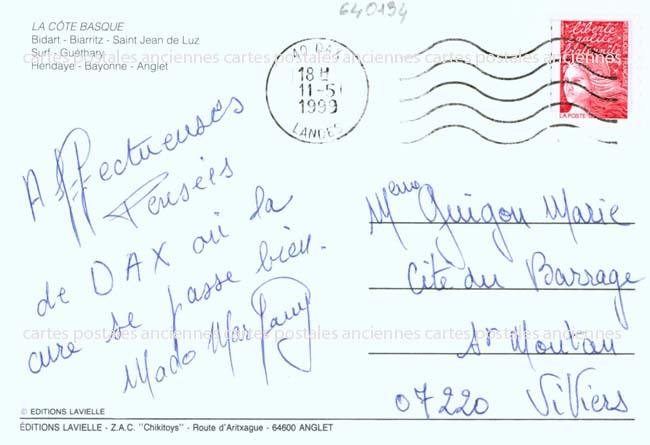 640194
LA CÔTE BASQUE
Bidart - Biarritz - Saint Jean de Luz
Surf - Guéthary
Hendaye - Bayonne - Anglet
cartes postales anciennes cartes postales anciennes cartes postales anciennes
40 DAX
18 H
11-5
1999
LANDES
liberté
égalité
fraternité
LA POSTE
Affectueuses
Pensées
de DAX où la
cure se passe bien.
Mado
Meme Guigou Marie
Cité du Barrage
St Montan
07220 Viviers
cartes postales anciennes cartes postales anciennes cartes postales anciennes
© EDITIONS LAVIELLE
ÉDITIONS LAVIELLE - Z.A.C. "Chikitoys" - Route d'Aritxague - 64600 ANGLET